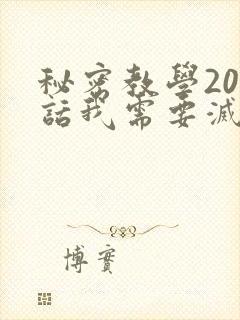 秘密教學20
話我需要滅
博實